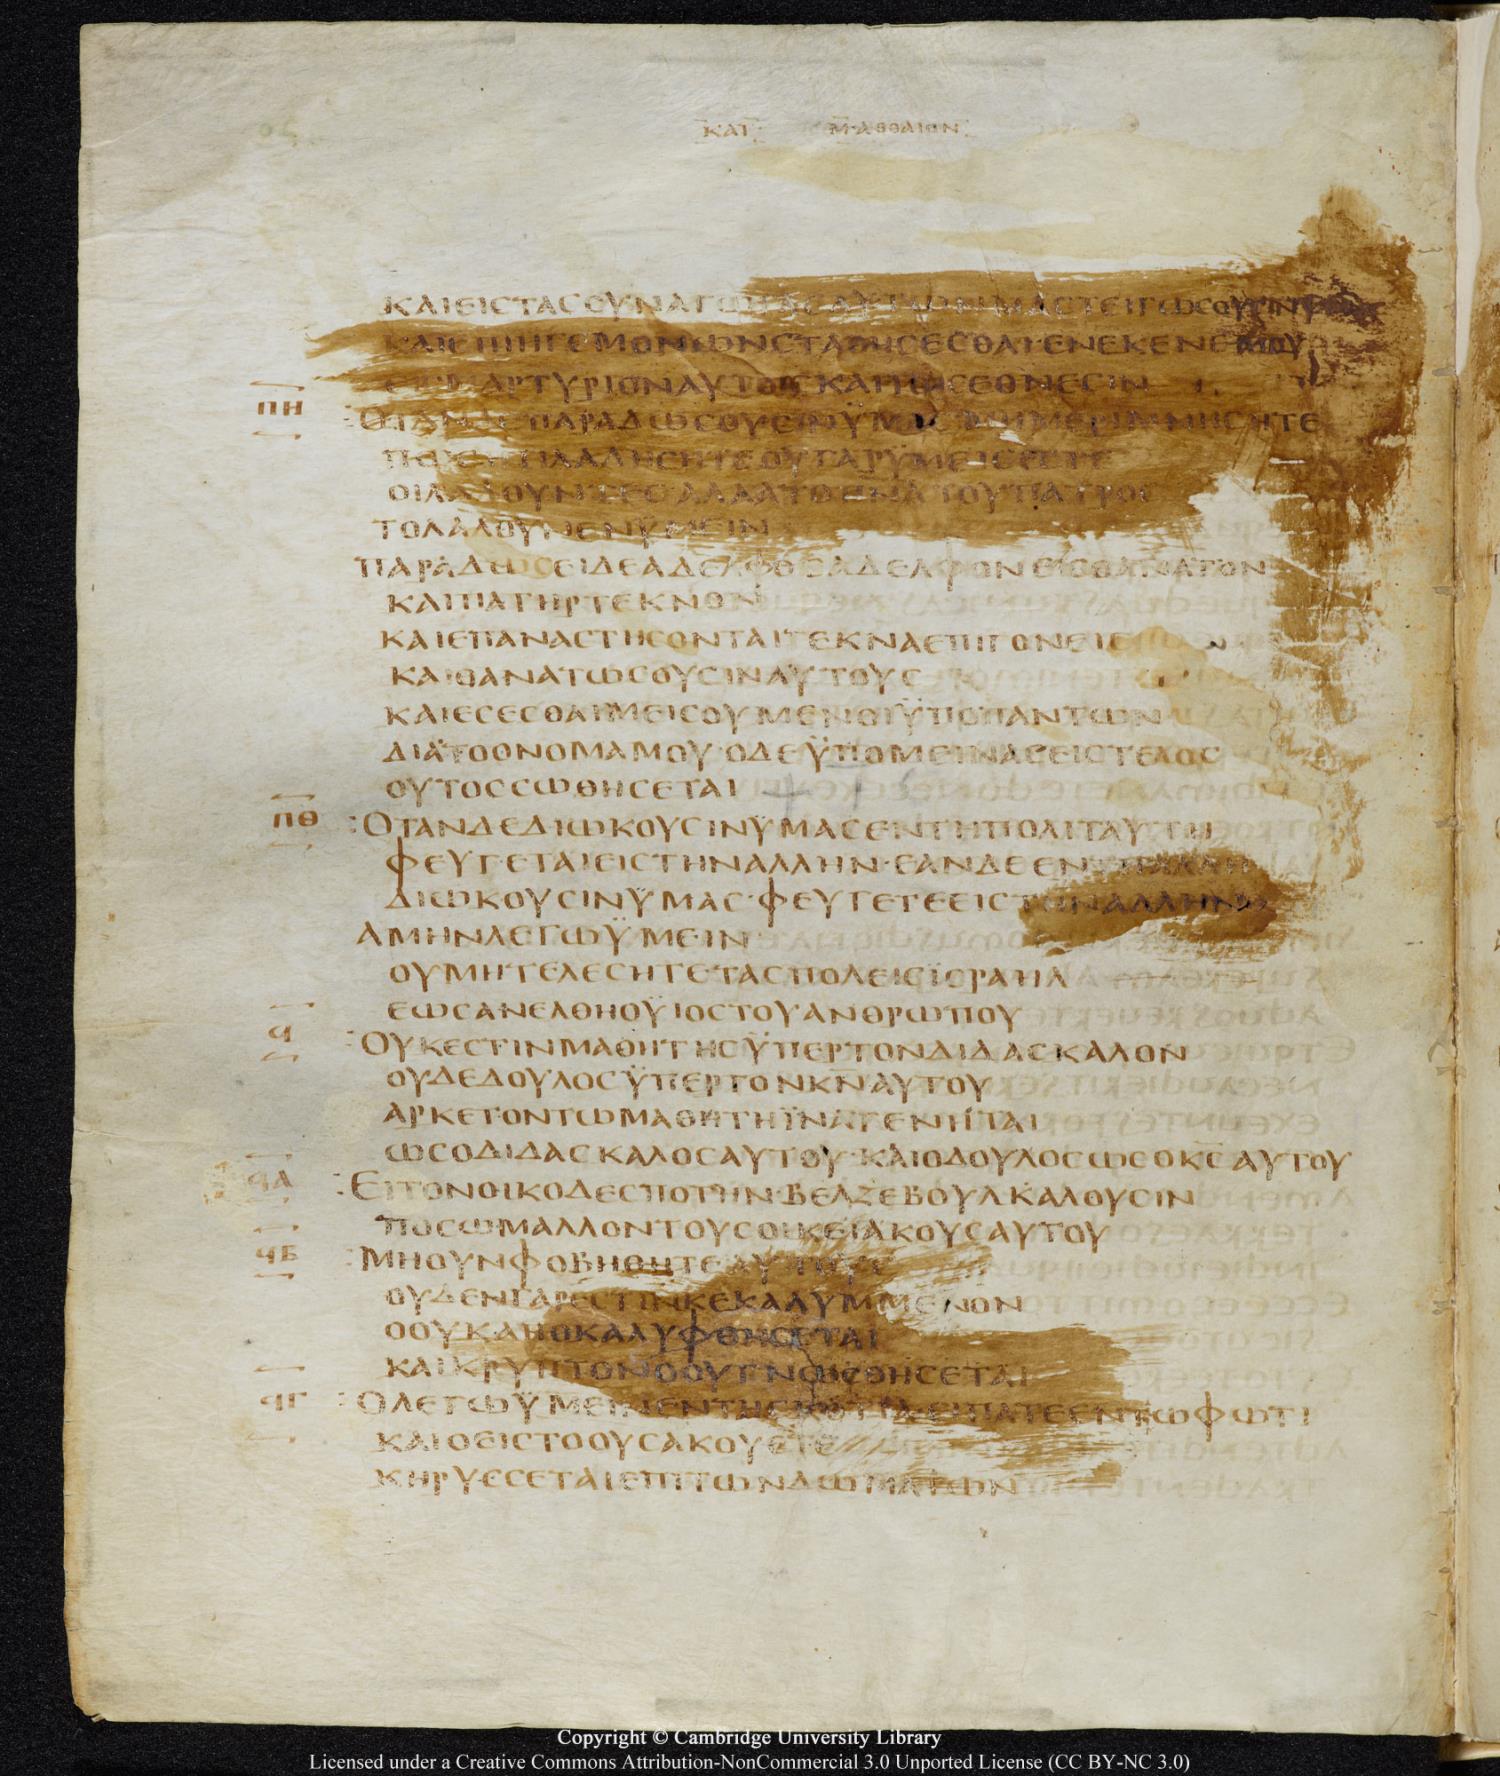 ΚΑΤ ΜΑΘΘΑΙΟΝ
ΚΑΙΕΙCΤΑCCΥΝΑΓΩΓΑC ΜΑCΤΕΙΓΩCΟΥCΙΝ
ΚΑΙΕΠΙΗΓΕΜΟΝΩΝCΤΑΘΗCΕCΘΑΙ·ΕΝΕΚΕΝΕΜΟΥ
ΕΙCΜΑΡΤΥΡΙΟΝΑΥΤΟΙCΚΑΙΤΟΙCΕΘΝΕCΙΝ
ΠΗ
ΟΤΑΝΔΕΠΑΡΑΔΩCΟΥCΙΝΫΜΑC ΜΗΜΕΡΙΜΝΗCΗΤΕ
ΠΩCΗΤΙΛΑΛΗCΗΤΕΟΥΓΑΡΫΜΕΙCΕCΤΕ
ΟΙΛΑΛΟΥΝΤΕCΑΛΛΑΤΟΠΝΑΤΟΥΠΑΤΡΟC
ΤΟΛΑΛΟΥΝΕΝΫΜΕΙΝ
ΠΑΡΑΔΩCΕΙΔΕΑΔΕΛΦΟCΑΔΕΛΦΟΝΕΙCΘΑΝΑΤΟΝ
ΚΑΙΠΑΤΗΡΤΕΚΝΟΝ
ΚΑΙΕΠΑΝΑCΤΗCΟΝΤΑΙΤΕΚΝΑΕΠΙΓΟΝΕΙC
ΚΑΙΘΑΝΑΤΩCΟΥCΙΝΑΥΤΟΥC
ΚΑΙΕCΕCΘΑΙΜΕΙCΟΥΜΕΝΟΙΫΠΟΠΑΝΤΩΝ
ΔΙΑΤΟΟΝΟΜΑΜΟΥ·ΟΔΕΫΠΟΜΕΙΝΑCΕΙCΤΕΛΟC
ΟΥΤΟCCΩΘΗCΕΤΑΙ
ΠΘ
:ΟΤΑΝΔΕΔΙΩΚΟΥCΙΝΫΜΑCΕΝΤΗΠΟΛΙΤΑΥΤΗ
ΦΕΥΓΕΤΑΙΕΙCΤΗΝΑΛΛΗΝ·ΕΑΝΔΕΕΝΤΗΑΛΛΗ
ΔΙΩΚΟΥCΙΝΫΜΑC·ΦΕΥΓΕΤΕΕΙCΤΗΝΑΛΛΗΝ
ΑΜΗΝΛΕΓΩΫΜΕΙΝ
ΟΥΜΗΤΕΛΕCΗΤΕΤΑCΠΟΛΕΙCΪCΡΑΗΛ
ΕΩCΑΝΕΛΘΗΟΫΙΟCΤΟΥΑΝΘΡΩΠΟΥ
Ϥ
:ΟΥΚΕCΤΙΝΜΑΘΗΤΗCΫΠΕΡΤΟΝΔΙΔΑCΚΑΛΟΝ
ΟΥΔΕΔΟΥΛΟCΫΠΕΡΤΟΝΚΝΑΥΤΟΥ
ΑΡΚΕΤΟΝΤΩΜΑΘΗΤΗΪΝΑΓΕΝΗΤΑΙ
ΩCΟΔΙΔΑCΚΑΛΟCΑΥΤΟΥ·ΚΑΙΟΔΟΥΛΟCΩCΟΚCΑΥΤΟΥ
ϤΑ
:ΕΙΤΟΝΟΙΚΟΔΕCΠΟΤΗΝ·ΒΕΛΖΕΒΟΥΛΚΑΛΟΥCΙΝ
ΠΟCΩΜΑΛΛΟΝΤΟΥCΟΙΚΕΙΑΚΟΥCΑΥΤΟΥ
ϤΒ
:ΜΗΟΥΝΦΟΒΗΘΗΤΕΑΥΤΟΥC
ΟΥΔΕΝΓΑΡΕCΤΙΝΚΕΚΑΛΥΜΜΕΝΟΝ
ΟΟΥΚΑΠΟΚΑΛΥΦΘΗCΕΤΑΙ
ΚΑΙΚΡΥΠΤΟΝΟΟΥΓΝΩCΘΗCΕΤΑΙ
ϤΓ
:ΟΛΕΓΩΫΜΕΙΝΕΝΤΗCΚΟΤΙΑ·ΕΙΠΑΤΕΕΝΤΩΦΩΤΙ
ΚΑΙΟΕΙCΤΟΟΥCΑΚΟΥΕΤΕ
ΚΗΡΥCCΕΤΑΙΕΠΙΤΩΝΔΩΜΑΤΩΝ
Copyright © Cambridge University Library
Licensed under a Creative Commons Attribution-NonCommercial 3.0 Unported License (CC BY-NC 3.0)